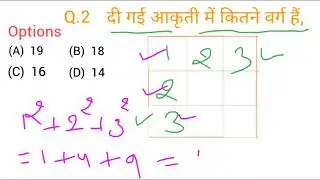 Q.2 दी गई आकृती में कितने वर्ग हैं,
Options
(A) 19 (B) 18
(C) 16 (D) 14
1 2 3
2
3
1²+2²+3²
=1+4+9 =